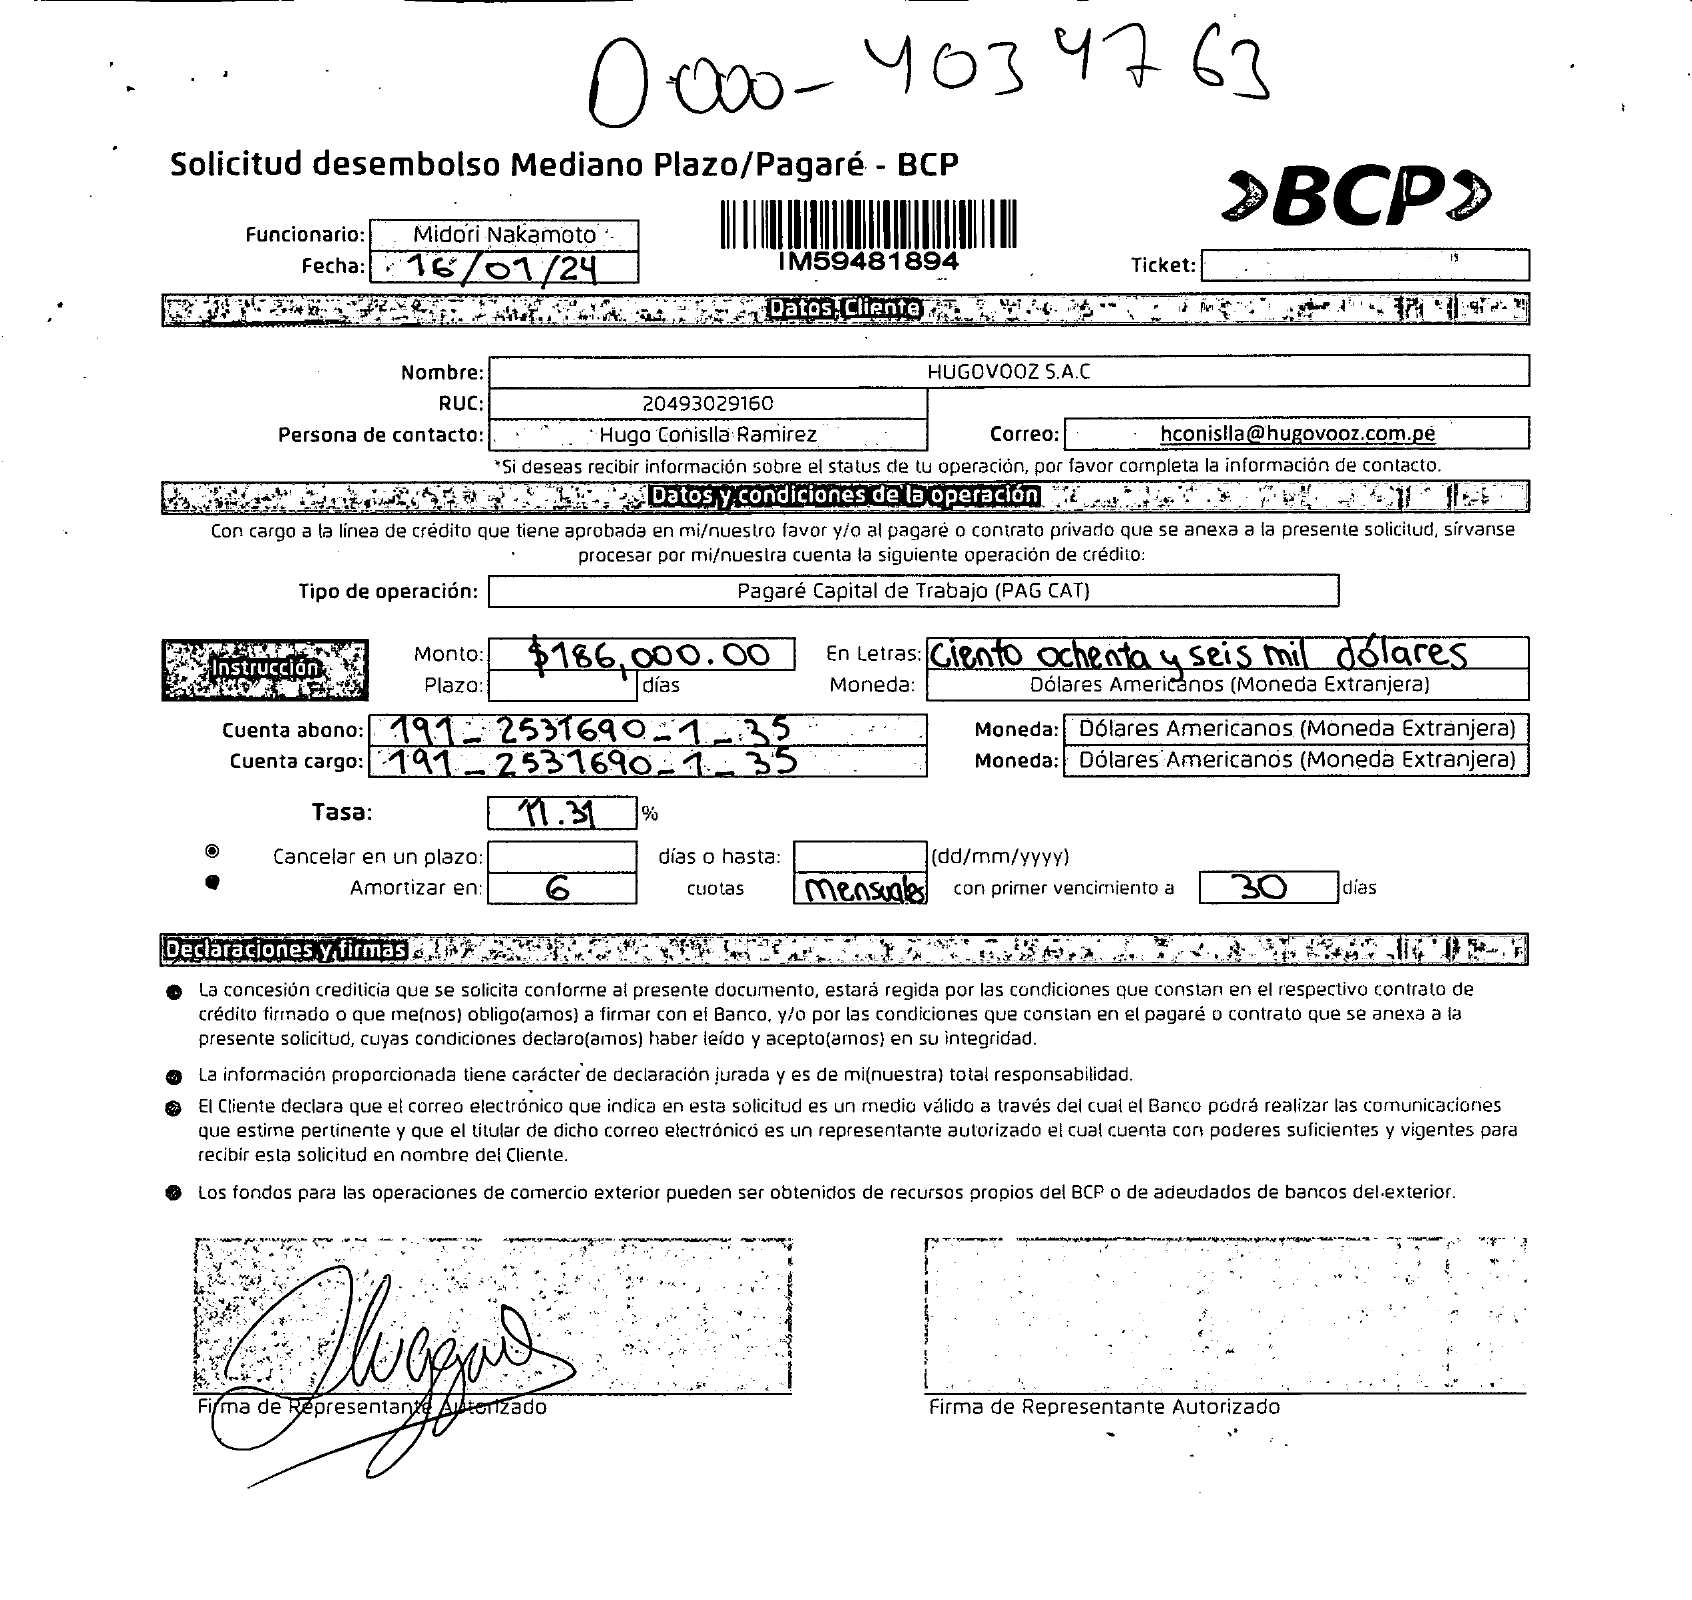 D000-4034763
Solicitud desembolso Mediano Plazo/Pagaré - BCP
»BCP»
Funcionario: Midori Nakamoto
IM59481894
Fecha: 16/01/24
Ticket:
Datos Cliente
Nombre: HUGOVOOZ S.A.C
RUC: 20493029160
Persona de contacto: Hugo Conislla Ramirez Correo: hconislla@hugovooz.com.pe
*Si deseas recibir información sobre el status de tu operación, por favor completa la información de contacto.
Datos y condiciones de la operación
Con cargo a la línea de crédito que tiene aprobada en mi/nuestro favor y/o al pagaré o contrato privado que se anexa a la presente solicitud, sírvanse
procesar por mi/nuestra cuenta la siguiente operación de crédito:
Tipo de operación: Pagaré Capital de Trabajo (PAG CAT)
Instrucción
Monto: $186,000.00 En Letras: Ciento ochenta y seis mil dólares
Plazo: días Moneda: Dólares Americanos (Moneda Extranjera)
Cuenta abono: 191_2531690_1_35 Moneda: Dólares Americanos (Moneda Extranjera)
Cuenta cargo: 191_2531690_1_35 Moneda: Dólares Americanos (Moneda Extranjera)
Tasa: 11.31 %
Cancelar en un plazo: días o hasta: (dd/mm/yyyy)
Amortizar en: 6 cuotas mensuales con primer vencimiento a 30 días
Declaraciones y firmas
La concesión crediticia que se solicita conforme al presente documento, estará regida por las condiciones que constan en el respectivo contrato de
crédito firmado o que me(nos) obligo(amos) a firmar con el Banco, y/o por las condiciones que constan en el pagaré o contrato que se anexa a la
presente solicitud, cuyas condiciones declaro(amos) haber leído y acepto(amos) en su integridad.
La información proporcionada tiene carácter de declaración jurada y es de mi(nuestra) total responsabilidad.
El Cliente declara que el correo electrónico que indica en esta solicitud es un medio válido a través del cual el Banco podrá realizar las comunicaciones
que estime pertinente y que el titular de dicho correo electrónico es un representante autorizado el cual cuenta con poderes suficientes y vigentes para
recibir esta solicitud en nombre del Cliente.
Los fondos para las operaciones de comercio exterior pueden ser obtenidos de recursos propios del BCP o de adeudados de bancos del exterior.
Firma de Representante Autorizado
Firma de Representante Autorizado